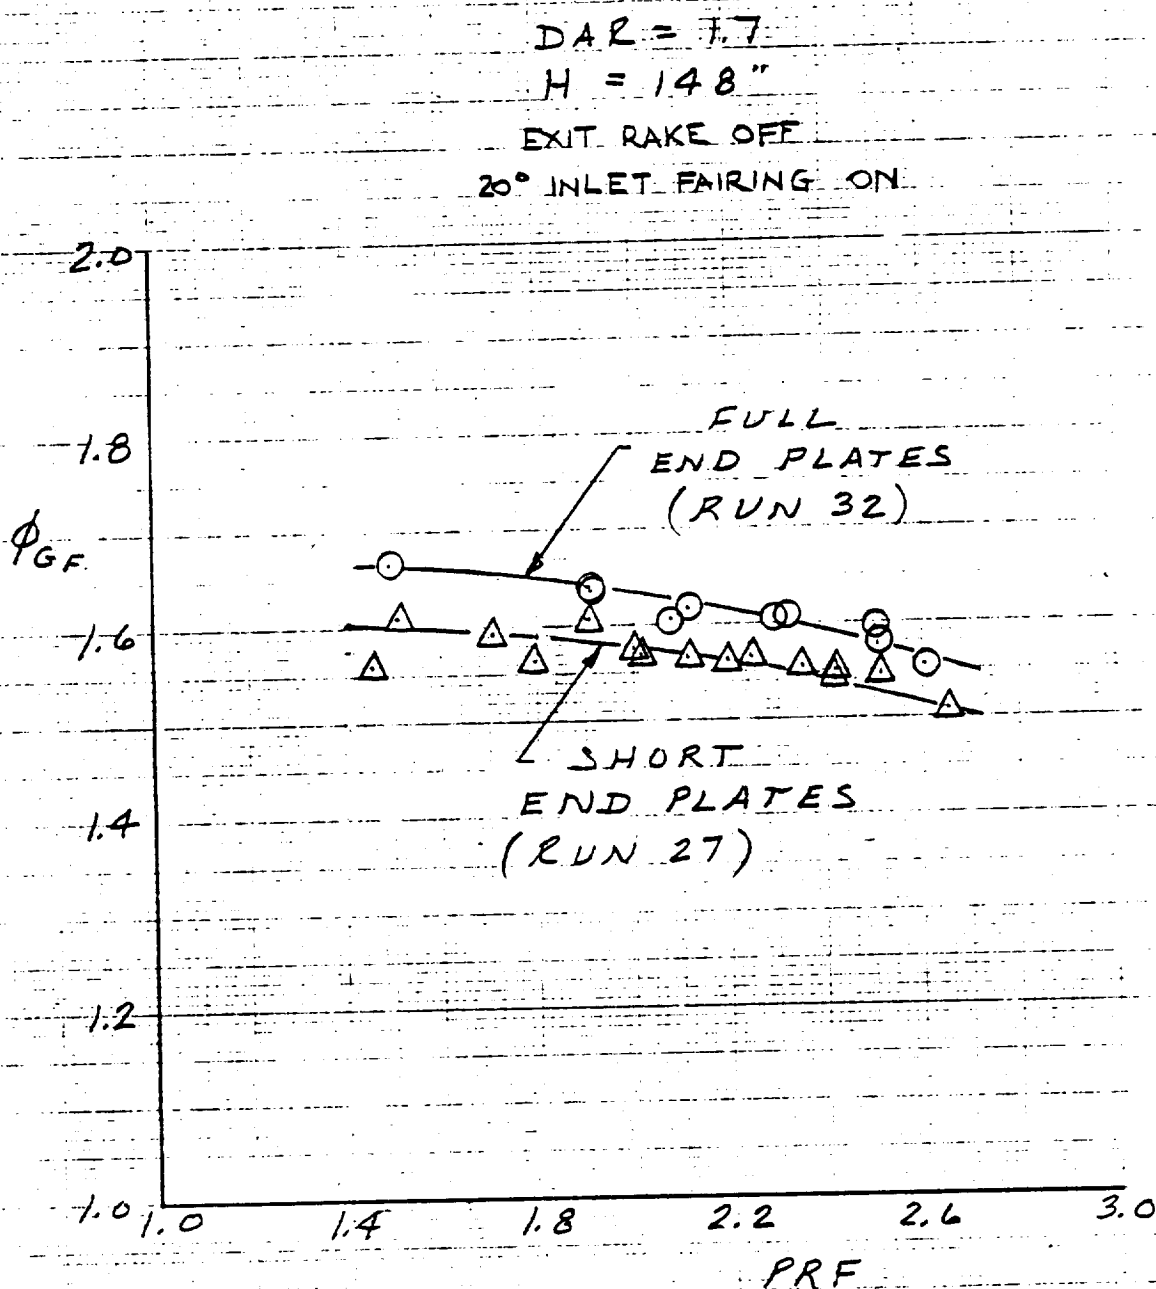 DAR = 1.7
H = 148"
EXIT RAKE OFF
20° INLET FAIRING ON
2.0
1.8
1.6
1.4
1.2
1.0
ϕGF
FULL
END PLATES
(RUN 32)
SHORT
END PLATES
(RUN 27)
1.0 1.4 1.8 2.2 2.6 3.0
PRF